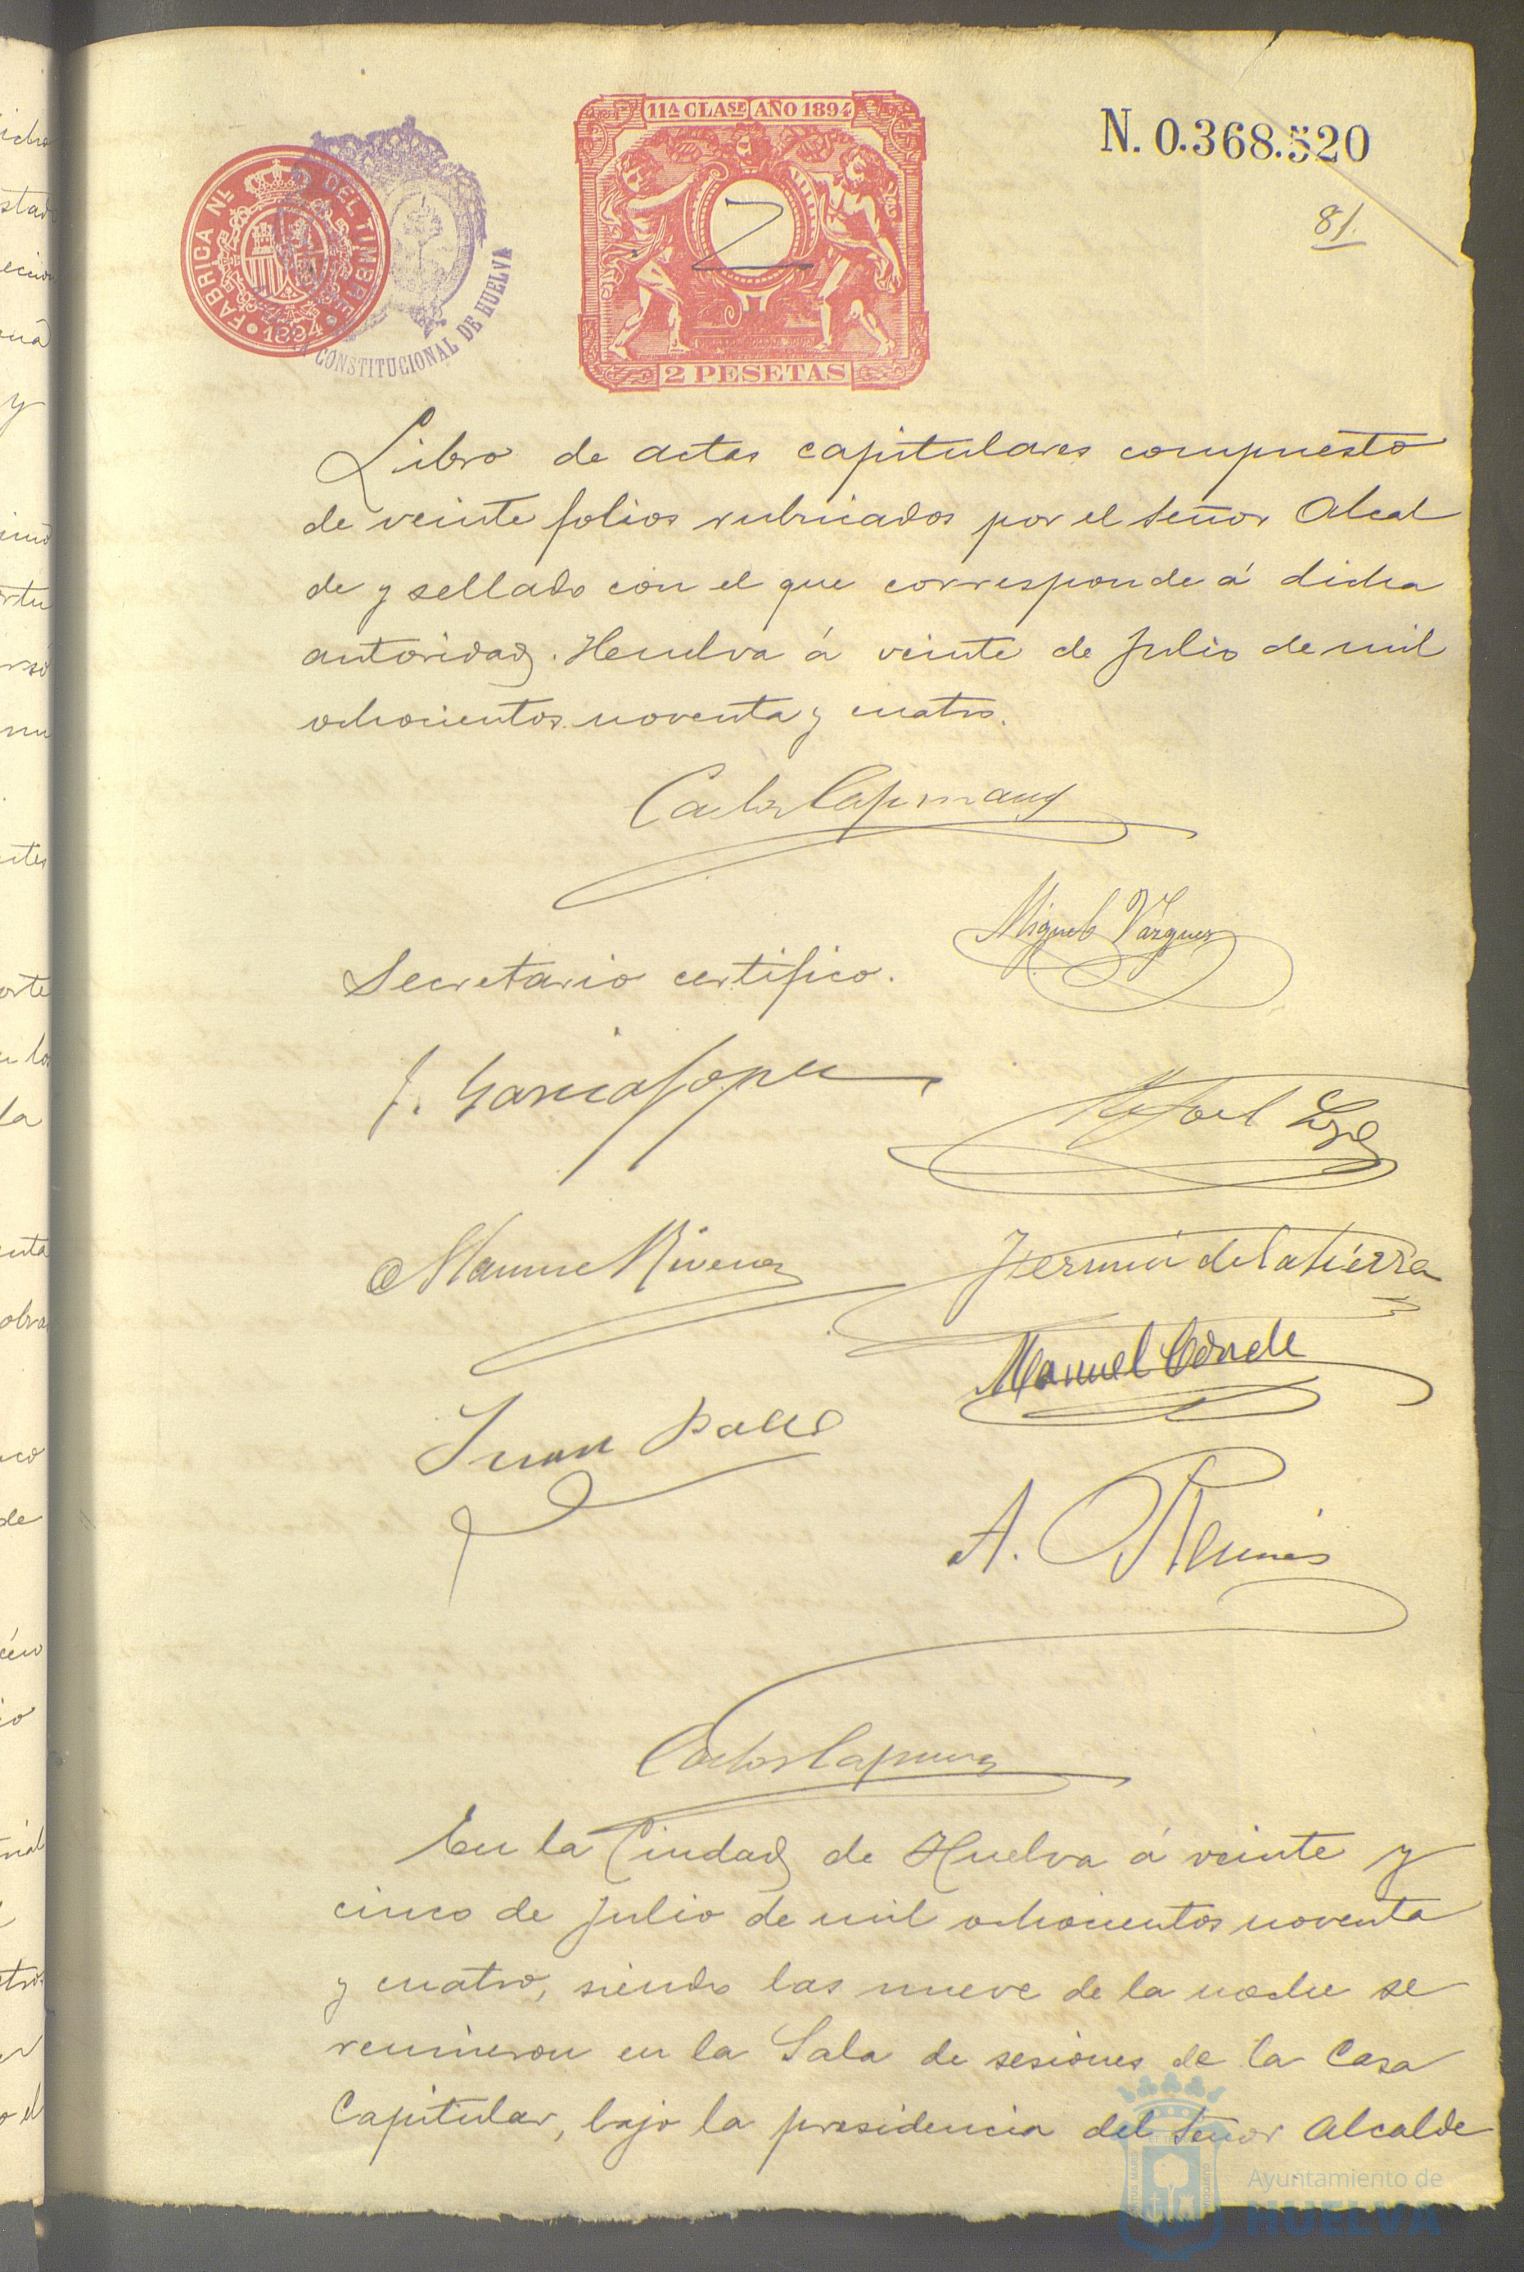 11ª CLASE AÑO 1894
N. 0.368.520
81.
FABRICA Nl. DEL TIMBRE
1894
CONSTITUCIONAL DE HUELVA
2
2 PESETAS
Libro de actas capitulares compuesto
de veinte folios rubricados por el Señor Alcal
de y sellado con el que corresponde á dicha
autoridad. Huelva á veinte de Julio de mil
ochocientos noventa y cuatro.
Carlos Capmany
Miguel Vázquez
Secretario certifico.
J. Garcia Lopez
Rafael
Manuel
Fermin de la Sierra
Manuel Conde
Juan
A.
Carlos Capmany
En la Ciudad de Huelva á veinte y
cinco de Julio de mil ochocientos noventa
y cuatro, siendo las nueve de la noche se
reunieron en la Sala de sesiones de la Casa
Capitular, bajo la presidencia del Señor Alcalde
Ayuntamiento de
HUELVA